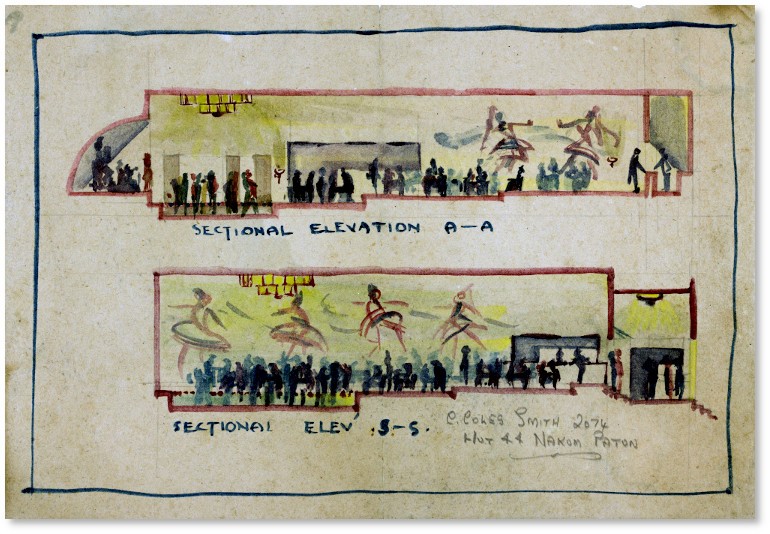 SECTIONAL ELEVATION A-A
SECTIONAL ELEV S-S.
C. COLES SMITH 2074
HUT 44 NAKOM PATON